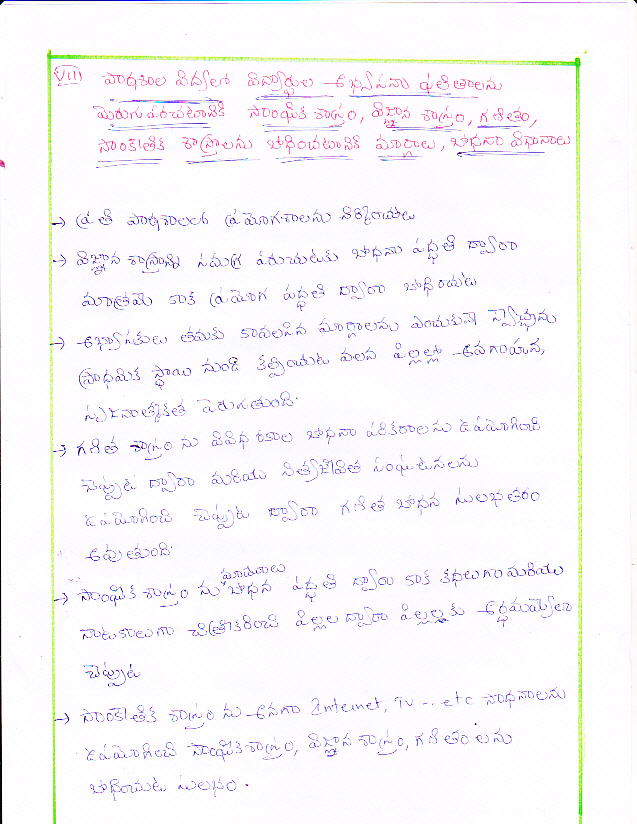 VIII పాఠశాల విద్యలో విద్యార్థుల అభ్యసనా ఫలితాలను
మెరుగు పరచటానికి సాంఘిక శాస్త్రం, విజ్ఞాన శాస్త్రం, గణితం,
సాంకేతిక శాస్త్రాలను బోధించటానికి మార్గాలు, బోధనా విధానాలు
→ ప్రతి పాఠశాలలో ప్రయోగశాలను నిర్మించుట
→ విజ్ఞాన శాస్త్రంను సమగ్ర పరుచుటకు బోధనా పద్ధతి ద్వారా
మాత్రమే కాక ప్రయోగ పద్ధతి ద్వారా బోధించుట
→ అభ్యాసకులు తమకు కావలసిన మార్గాలను ఎంచుకునే స్వేచ్ఛను
ప్రాథమిక స్థాయి నుండి కల్పించుట వలన పిల్లల్లో అవగాహన,
సృజనాత్మకత పెరుగుతుంది.
→ గణిత శాస్త్రం ను వివిధ రకాల బోధనా పరికరాలను ఉపయోగించి
చెప్పుట ద్వారా మరియు నిత్యజీవిత సంఘటనలను
ఉపయోగించి చెప్పుట ద్వారా గణిత బోధన సులభతరం
అవుతుంది.
→ సాంఘిక శాస్త్రం ను బోధన పద్ధతి ద్వారా కాక కథలుగా మరియు
నాటకాలుగా చిత్రీకరించి పిల్లల ద్వారా పిల్లలకు అర్థమయ్యేలా
చెప్పుట
→ సాంకేతిక శాస్త్రం ను అనగా Internet, TV ... etc సాధనాలను
ఉపయోగించి సాంఘికశాస్త్రం, విజ్ఞాన శాస్త్రం, గణితం లను
బోధించుట సులభం.